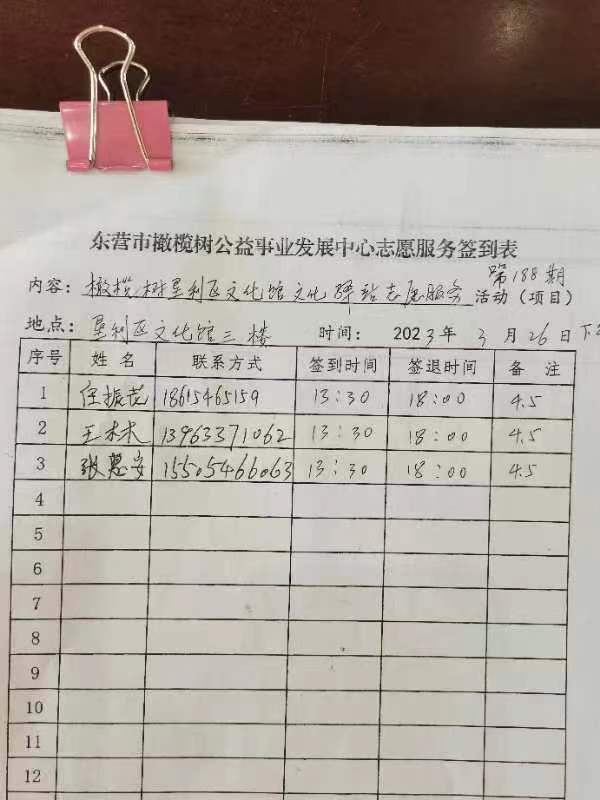 东营市橄榄树公益事业发展中心志愿服务签到表
第188期
内容：橄榄树垦利区文化馆文化驿站志愿服务 活动（项目）
地点：垦利区文化馆三楼 时间：2023年3月26日下
序号 姓名 联系方式 签到时间 签退时间 备注
1 任振茂 18615465159 13:30 18:00 4.5
2 王木木 13963371062 13:30 18:00 4.5
3 张慧安 15505466063 13:30 18:00 4.5
4
5
6
7
8
9
10
11
12